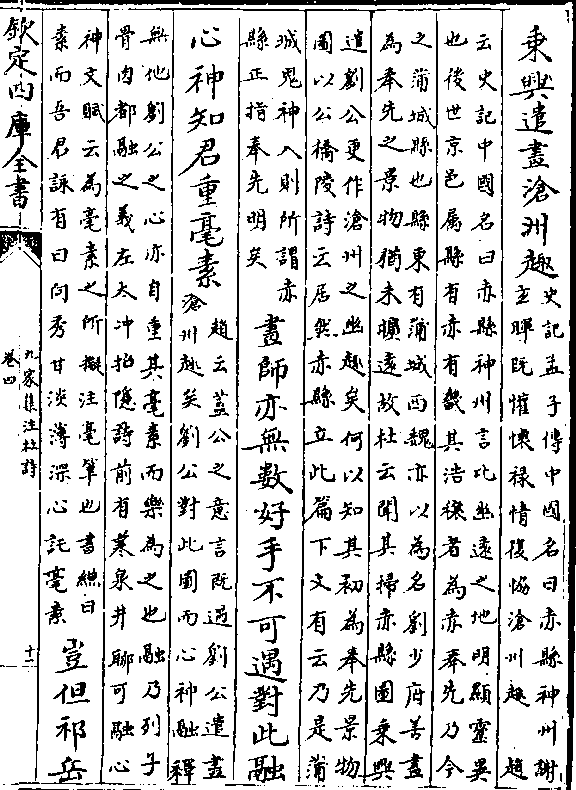 乗興遣畫滄州趣
史記孟子傳中國名曰亦縣神州謝
玄暉既懽懷禄情復恊滄州趣 趙
云史記中國名曰赤縣神州言此幽逺之地明顯靈異
也後世京邑屬縣有赤有畿其浩穰者為赤奉先乃今
之蒲城縣也縣東有蒲城西魏亦以為名劉少府善畫
為奉先之景物猶未曠逺故杜云聞其掃赤縣圖乗興
遣劉公更作滄州之幽趣矣何以知其初為奉先景物
圖以公橋陵詩云居然赤縣立此篇下文有云乃是蒲
城鬼神入則所謂赤
縣正指奉先明矣
畫師亦無數好手不可遇對此融
心神知君重毫素
趙云蓋公之意言既遇劉公遣畫
滄州趣矣劉公對此圖而心神融釋
無他劉公之心亦自重其毫素而樂為之也融乃列子
骨肉都融之義左太冲招隠詩前有寒泉井聊可融心
神文賦云為毫素之所擬注毫筆也書縑曰
素而吾君詠有曰向秀甘淡薄深心託毫素
豈但祁岳
欽定四庫全書
九家集注杜詩
卷四
十二